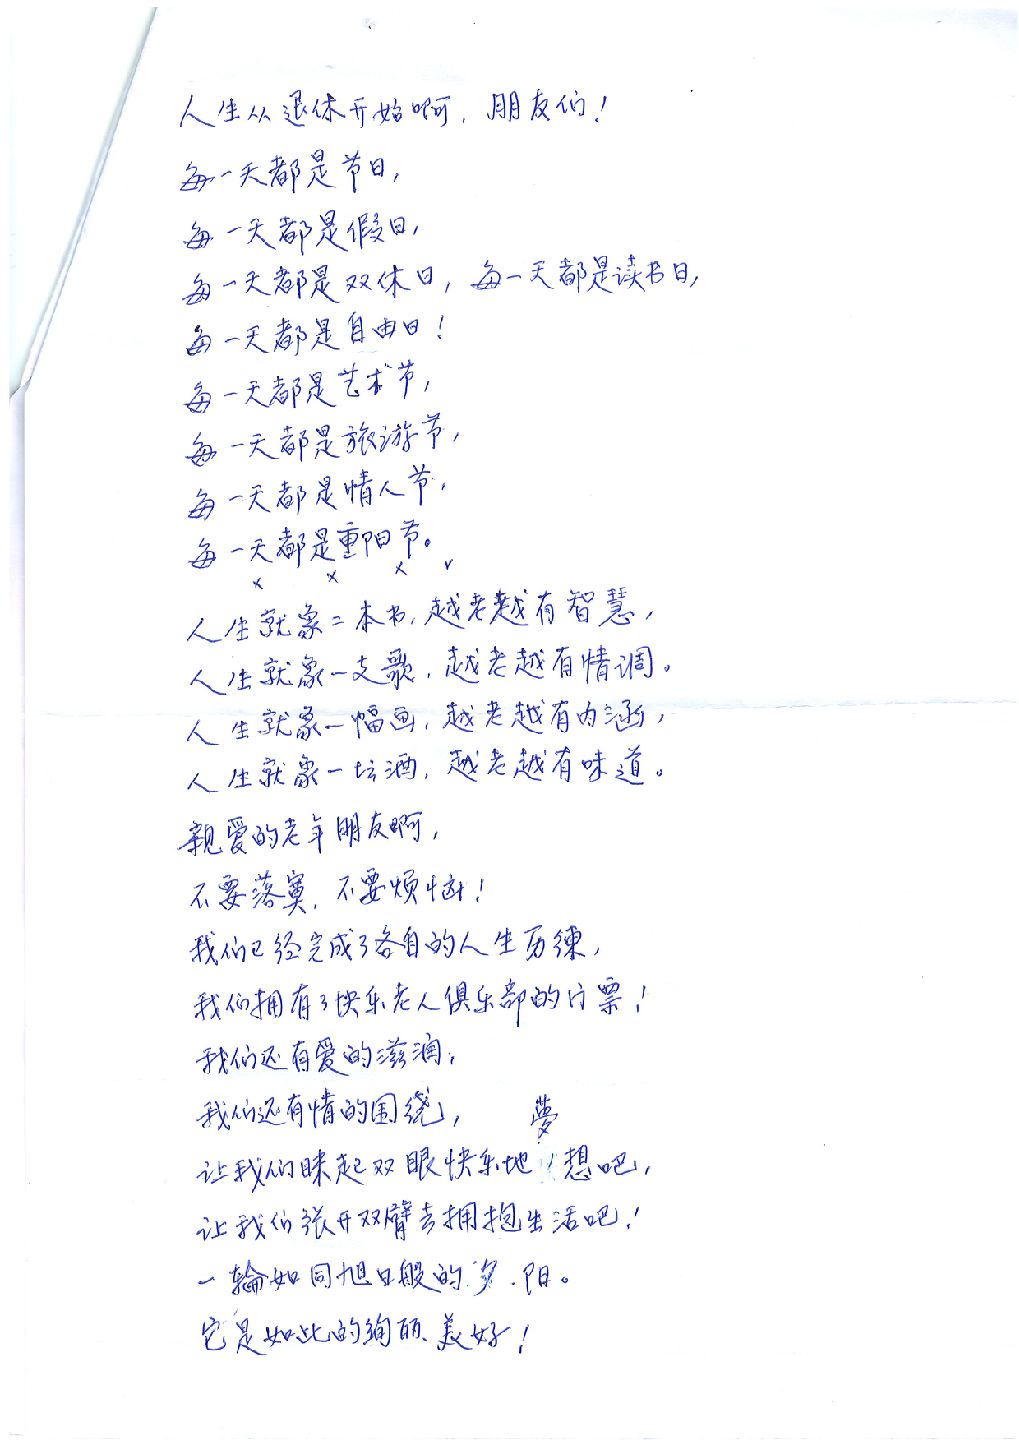 人生从退休开始啊，朋友们！
每一天都是节日，
每一天都是假日，
每一天都是双休日，每一天都是读书日，
每一天都是自由日！
每一天都是艺术节，
每一天都是旅游节，
每一天都是情人节，
每一天都是重阳节。
人生就象一本书，越老越有智慧，
人生就象一支歌，越老越有情调。
人生就象一幅画，越老越有内涵，
人生就象一坛酒，越老越有味道。
亲爱的老年朋友啊，
不要落寞，不要烦恼！
我们已经完成了各自的人生历练，
我们拥有了快乐老人俱乐部的门票！
我们还有爱的滋润，
我们还有情的围绕，
让我们眯起双眼快乐地夢想吧，
让我们张开双臂去拥抱生活吧！
一轮如同旭日般的夕阳。
它是如此的绚丽、美好！